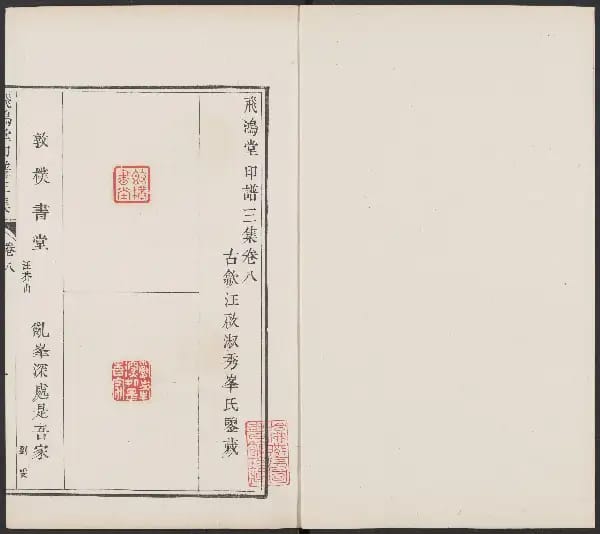 飛鴻堂印譜三集卷八
古歙汪啟淑秀峯氏鑒藏
敦樸書堂
汪芥山
亂峯深處是吾家
飛鴻堂印譜三集
卷八